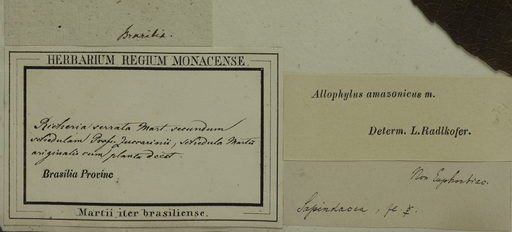 Brasilia.
HERBARIUM REGIUM MONACENSE.
Richeria serrata Mart. secundum
schedulam Prof. Zuccarinii, schedula Martii
originalis cum planta docet.
Brasilia Provinc
Martii iter brasiliense.
Allophylus amazonicus m.
Determ. L. Radlkofer.
Non Euphorbiac.
Sapindacea,